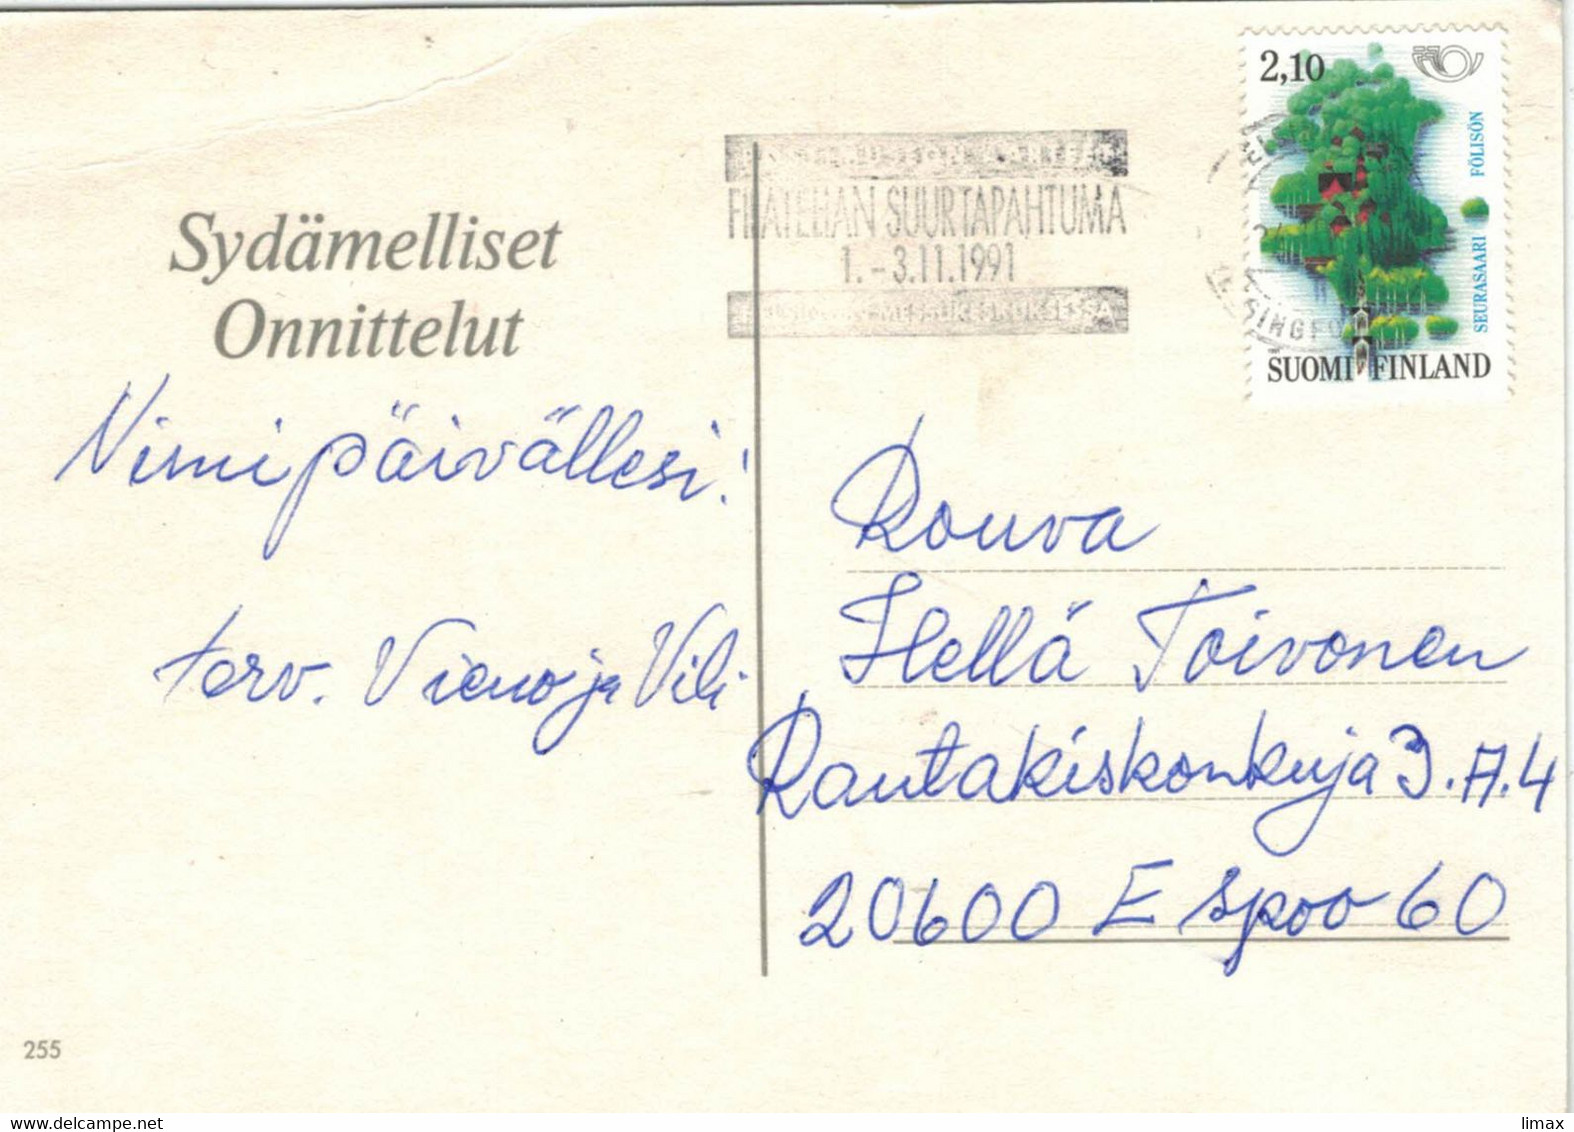 2,10
FÖLISÖN
SEURASAARI
SUOMI FINLAND
FILATELIAN SUURTAPAHTUMA
1.-3.11.1991
MESSUKESKUKSESSA
Sydämelliset
Onnittelut
Nimipäivällesi!
terv. Vieno ja Vili
Rouva
Hellä Toivonen
Rautakiskonkuja 3.A.4
20600 Espoo 60
255
www.delcampe.net
limax